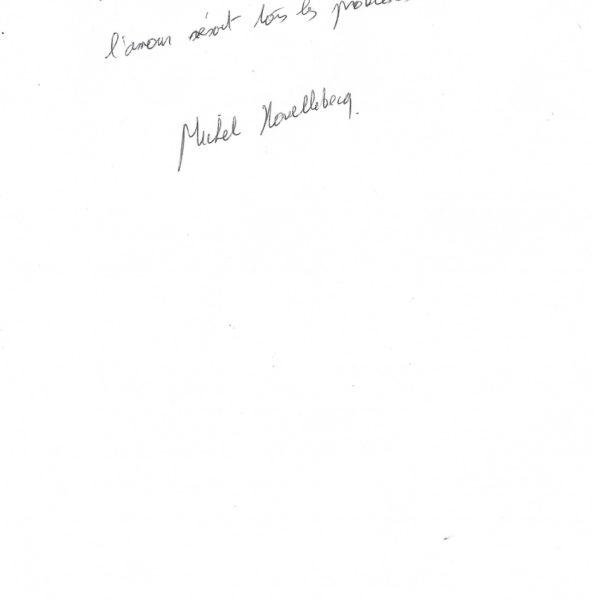 l'amour résout tous les problèmes
Michel Houellebecq.